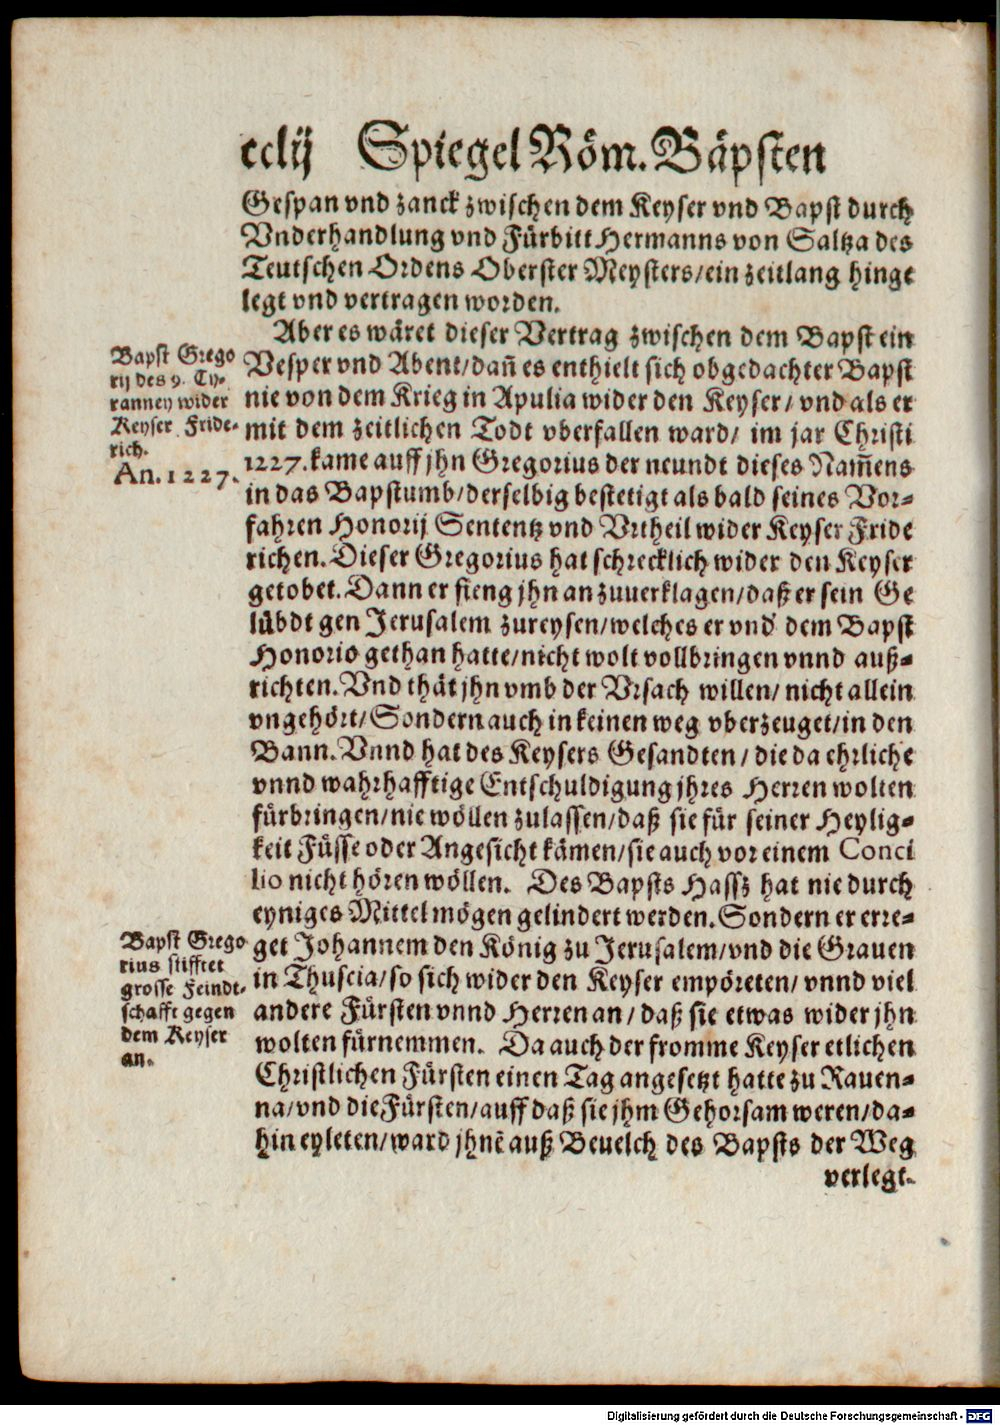 cclij Spiegel Röm. Bäpsten
Gespan vnd zanck zwischen dem Keyser vnd Bapst durch
Vnderhandlung vnd Fürbitt Hermanns von Saltza des
Teutschen Ordens Oberster Meysters/ein zeitlang hinge
legt vnd vertragen worden.
Aber es wäret dieser Vertrag zwischen dem Bapst ein
Vesper vnd Abent/dañ es enthielt sich obgedachter Bapst
nie von dem Krieg in Apulia wider den Keyser/ vnd als er
mit dem zeitlichen Todt vberfallen ward/ im jar Christi
1227. kame auff jhn Gregorius der neundt dieses Nam̃ens
in das Bapstumb/derselbig bestetigt als bald seines Vor-
fahren Honorij Sententz vnd Vrtheil wider Keyser Fride
richen. Dieser Gregorius hat schrecklich wider den Keyser
getobet. Dann er fieng jhn an zuuerklagen/daß er sein Ge
lübdt gen Jerusalem zureysen/welches er vnd dem Bapst
Honorio gethan hatte/nicht wolt vollbringen vnnd auß-
richten. Vnd thät jhn vmb der Vrsach willen/ nicht allein
vngehört/ Sondern auch in keinen weg vberzeuget/in den
Bann. Vnnd hat des Keysers Gesandten/ die da ehrliche
vnnd wahrhafftige Entschuldigung jhres Herren wolten
fürbringen/nie wöllen zulassen/daß sie für seiner Heylig-
keit Füsse oder Angesicht kämen/sie auch vor einem Conci
lio nicht hören wöllen. Des Bapsts Hassz hat nie durch
eyniges Mittel mögen gelindert werden. Sondern er erre-
get Johannem den König zu Jerusalem/vnd die Grauen
in Thuscia/so sich wider den Keyser empöreten/ vnnd viel
andere Fürsten vnnd Herren an/ daß sie etwas wider jhn
wolten fürnemmen. Da auch der fromme Keyser etlichen
Christlichen Fürsten einen Tag angesetzt hatte zu Rauen-
na/vnd die Fürsten/auff daß sie jhm Gehorsam weren/da-
hin eyleten/ward jhnē auß Beuelch des Bapsts der Weg
verlegt.
Bapst Grego
rij des 9. Ty-
ranney wider
Keyser Fride-
rich.
An. 1227.
Bapst Grego
rius stifftet
grosse Feindt-
schafft gegen
dem Keyser
an.
Digitalisierung gefördert durch die Deutsche Forschungsgemeinschaft - DFG